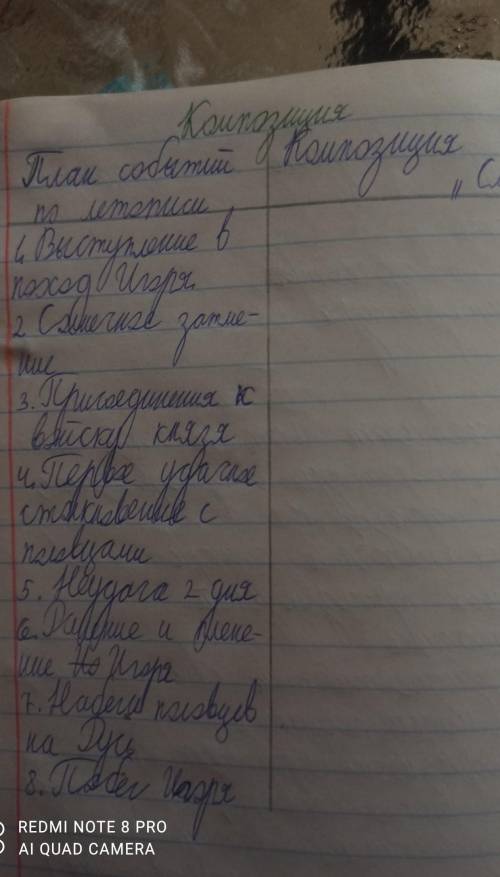 Композиция
План событий
по летописи
Композиция
"Сл
1. Выступление в
поход Игоря
2 Солнечное затме-
ние
3. Присоединения к
войску князя
4. Первое удачное
столкновение с
половцами
5. Неудача 2 дня
6. Ранение и плене-
ние Игоря
7. Набеги половцев
на Русь
8. Побег Игоря
REDMI NOTE 8 PRO
AI QUAD CAMERA